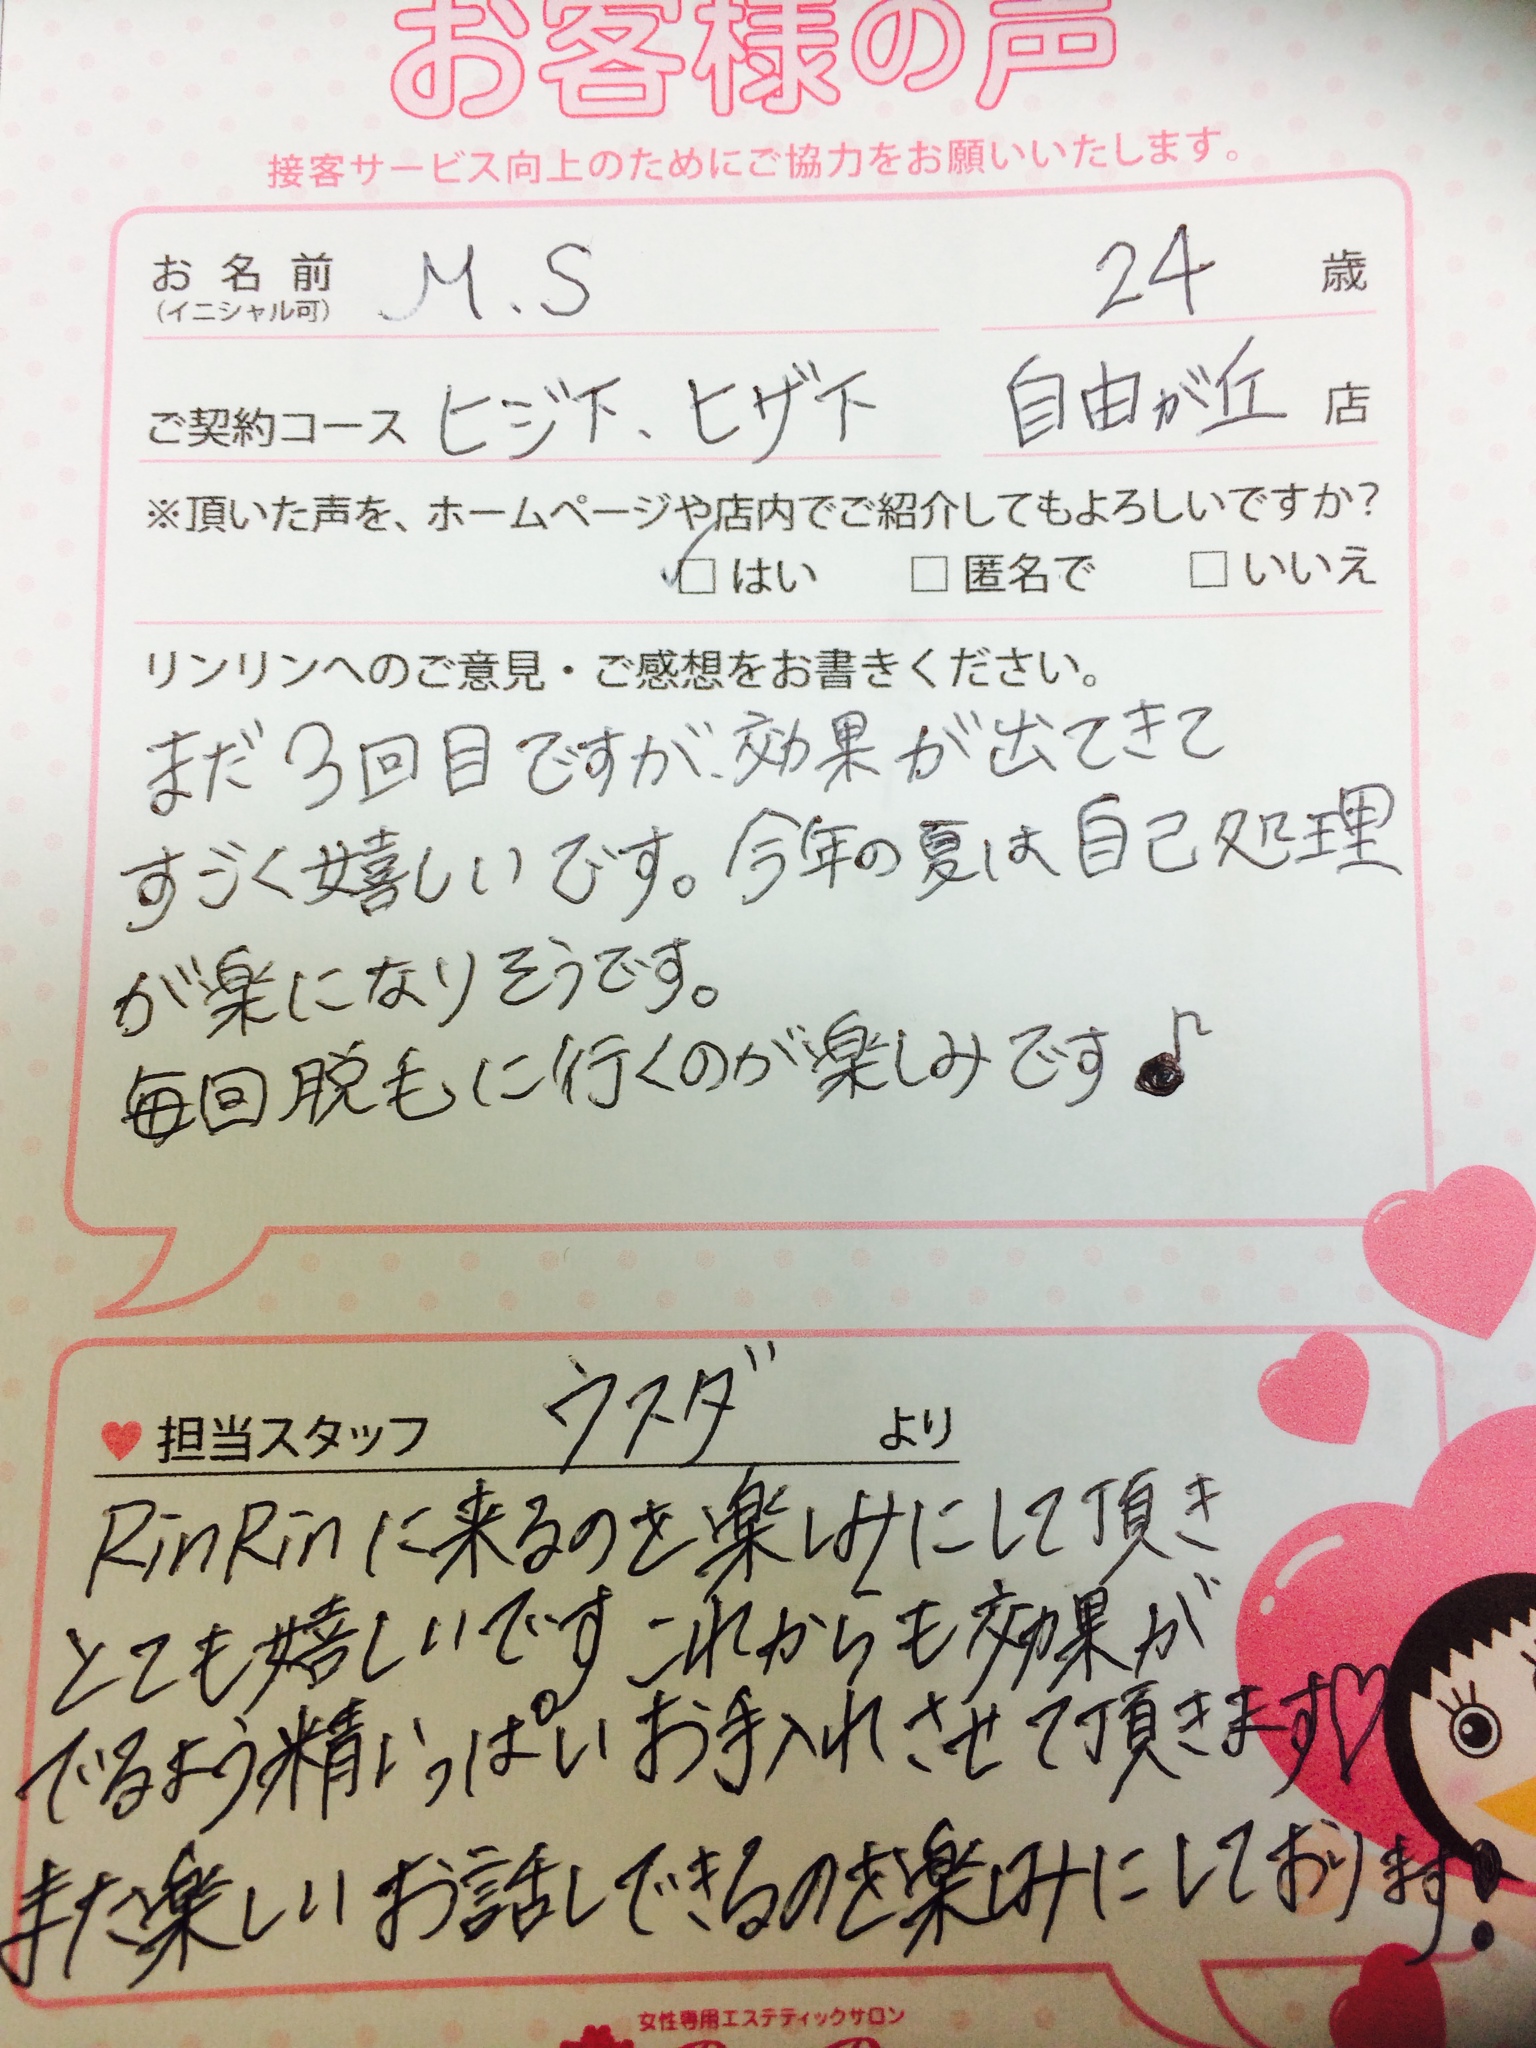 お客様の声
接客サービス向上のためにご協力をお願いいたします。
お名前 M.S 24 歳
(イニシャル可)
ご契約コース ヒジ下、ヒザ下 自由が丘 店
※頂いた声を、ホームページや店内でご紹介してもよろしいですか?
☑ はい □ 匿名で □ いいえ
リンリンへのご意見・ご感想をお書きください。
まだ3回目ですが、効果が出てきて
すごく嬉しいです。今年の夏は自己処理
が楽になりそうです。
毎回脱毛に行くのが楽しみです♪
♥ 担当スタッフ ウスダ より
RinRinに来るのを楽しみにして頂き
とても嬉しいです。これからも効果が
でるよう精いっぱいお手入れさせて頂きます♡
また楽しいお話しできるのを楽しみにしております!
女性専用エステティックサロン